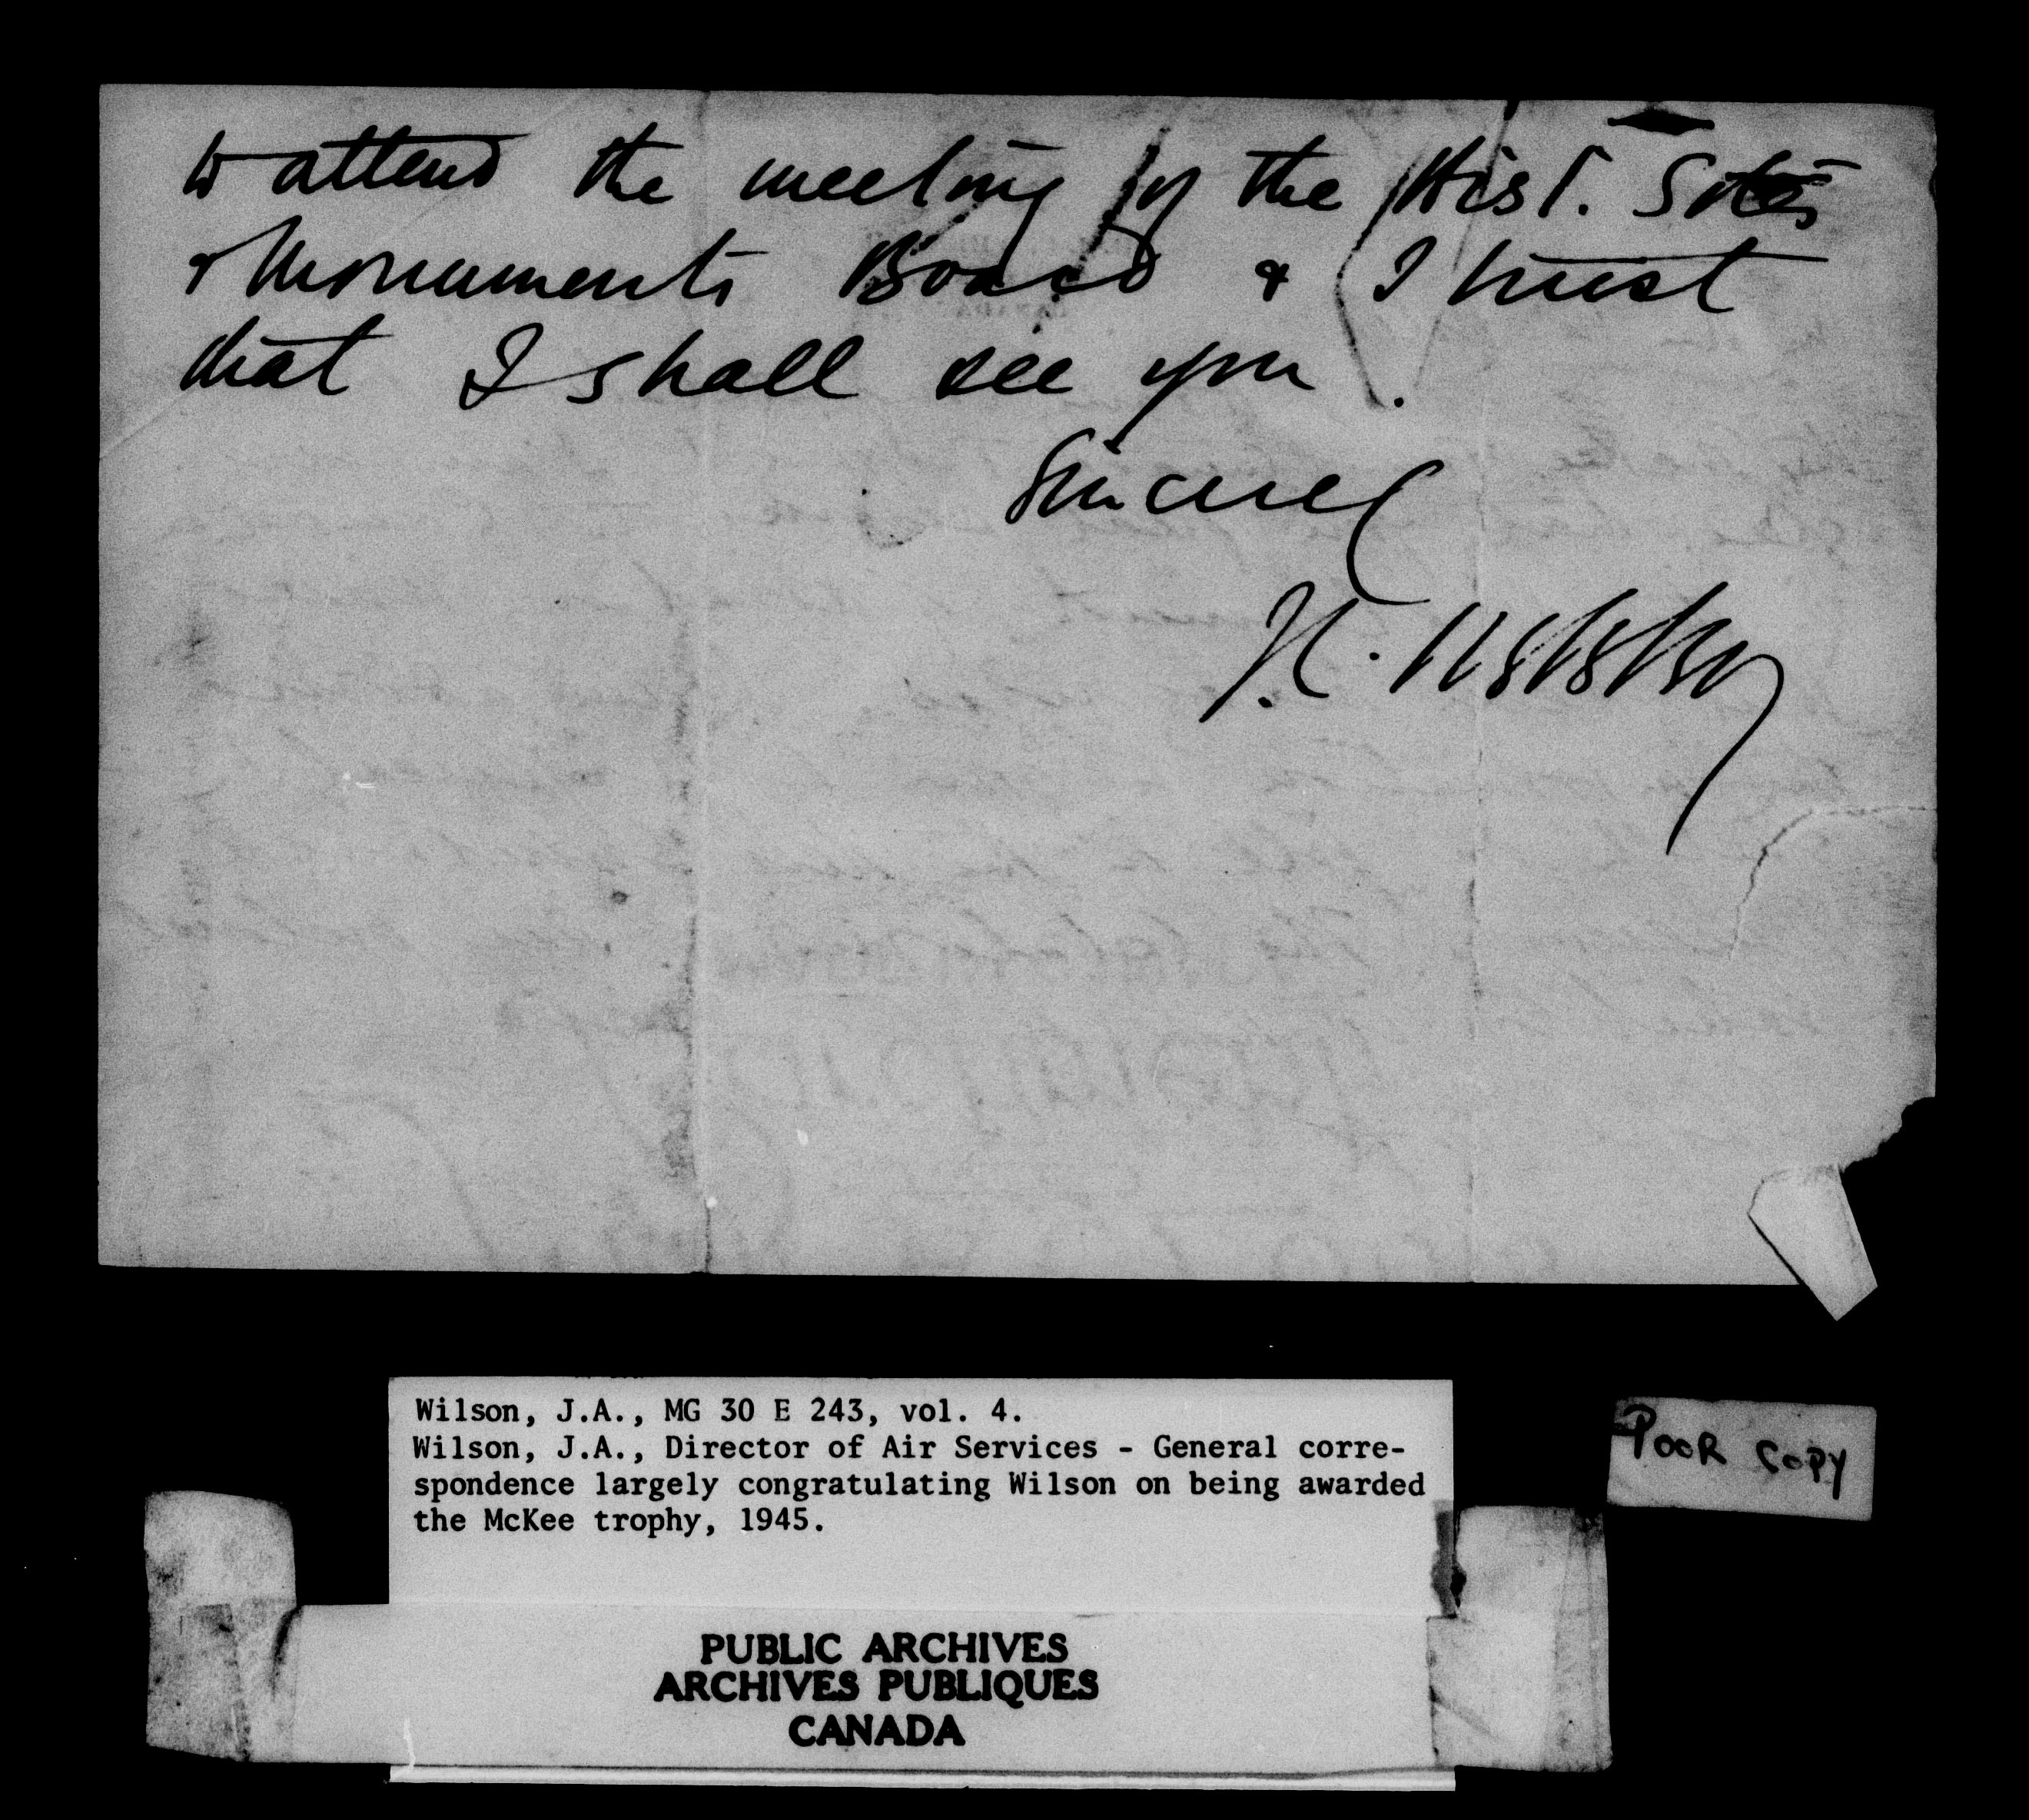 to attend the meeting of the Hist. Sites
& Monuments Board & I trust
that I shall see you.
Sincerely
Wilson, J.A., MG 30 E 243, vol. 4.
Wilson, J.A., Director of Air Services - General corre-
spondence largely congratulating Wilson on being awarded
the McKee trophy, 1945.
POOR COPY
PUBLIC ARCHIVES
ARCHIVES PUBLIQUES
CANADA